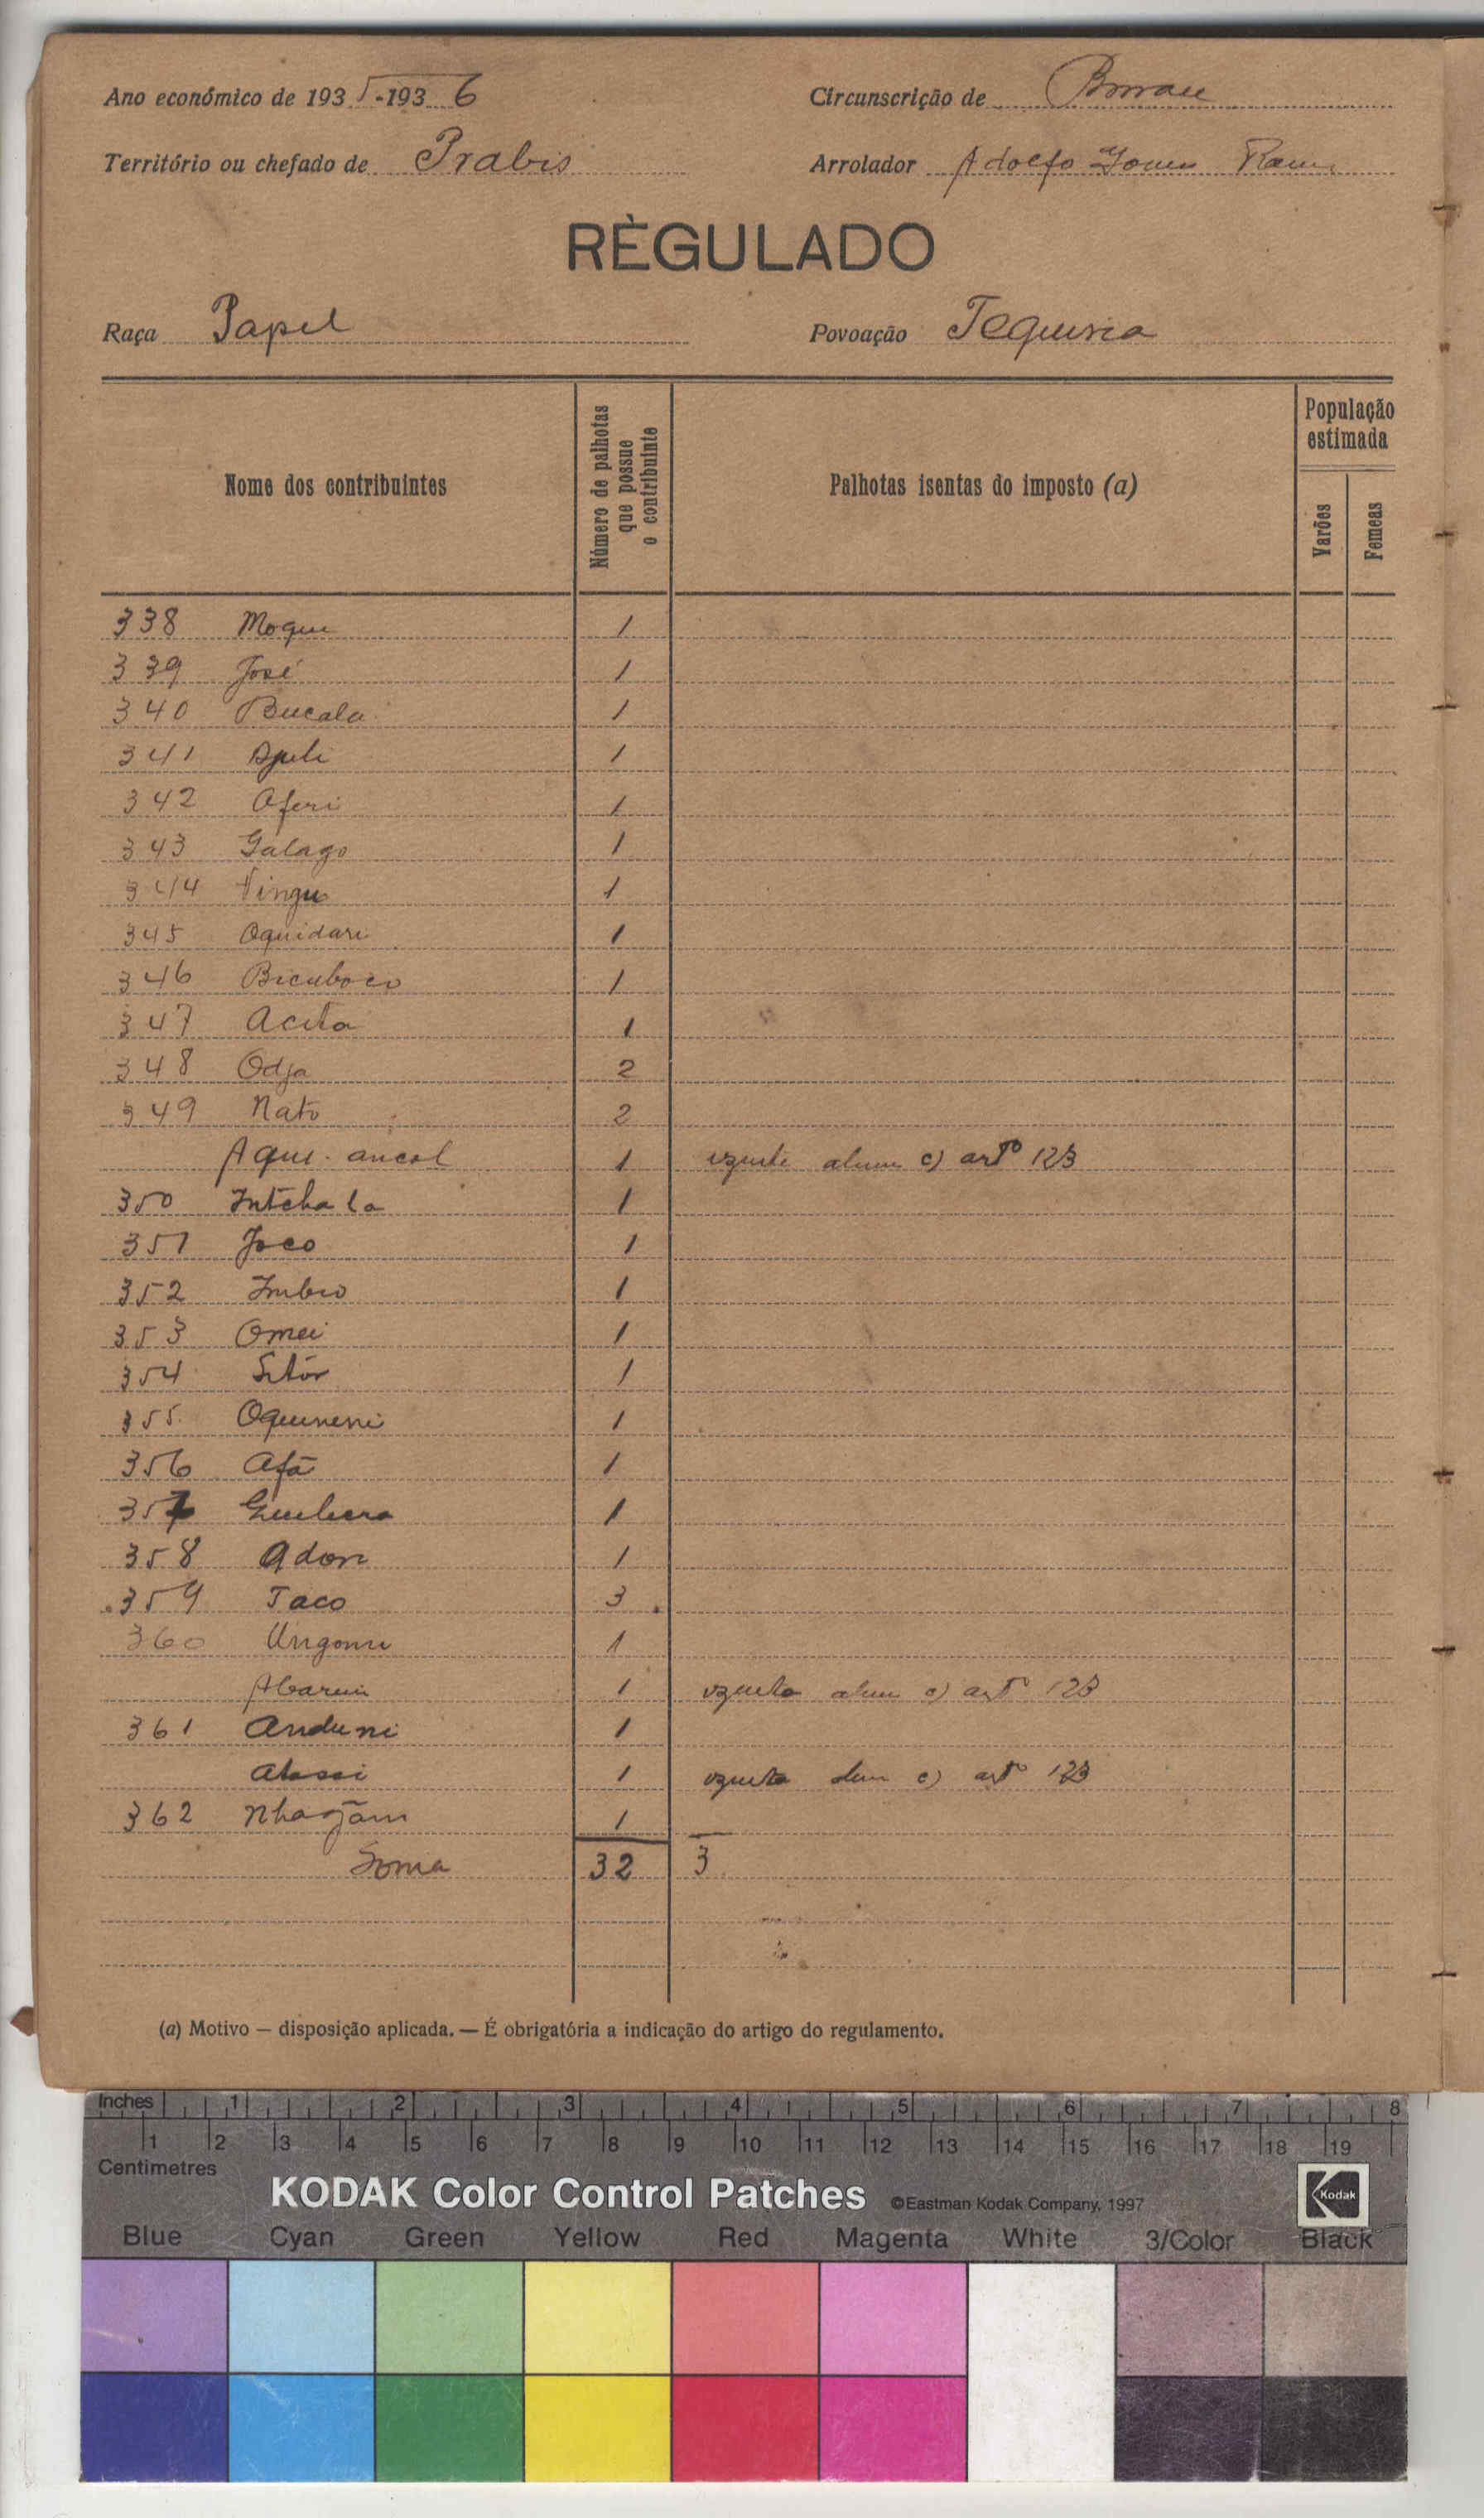 Ano económico de 1935-1936
Circunscrição de
Território ou chefado de Prabis
Arrolador Adolfo Gomes Ramos
RÈGULADO
Raça Papel
Povoação
Nome dos contribuintes
Número de palhotas que possue o contribuinte
Palhotas isentas do imposto (a)
População estimada
Varões
Femeas
338 Moqui 1
339 José 1
340 Bucala 1
341 1
342 Aferi 1
343 Galago 1
344 1
345 Oquidari 1
346 1
347 1
348 Odja 2
349 Nato 2
Aqui ancal 1 c) artº 123
350 Intchala 1
351 Joco 1
352 1
353 Omei 1
354 1
355 1
356 Afã 1
357 1
358 Adon 1
359 Taco 3
360 1
1 c) artº 123
361 Anduni 1
1 c) artº 123
362 1
Soma 32 3
(a) Motivo — disposição aplicada. — É obrigatória a indicação do artigo do regulamento.
Inches 1 2 3 4 5 6 7 8
1 2 3 4 5 6 7 8 9 10 11 12 13 14 15 16 17 18 19
Centimetres
KODAK Color Control Patches ©Eastman Kodak Company, 1997 Kodak
Blue Cyan Green Yellow Red Magenta White 3/Color Black